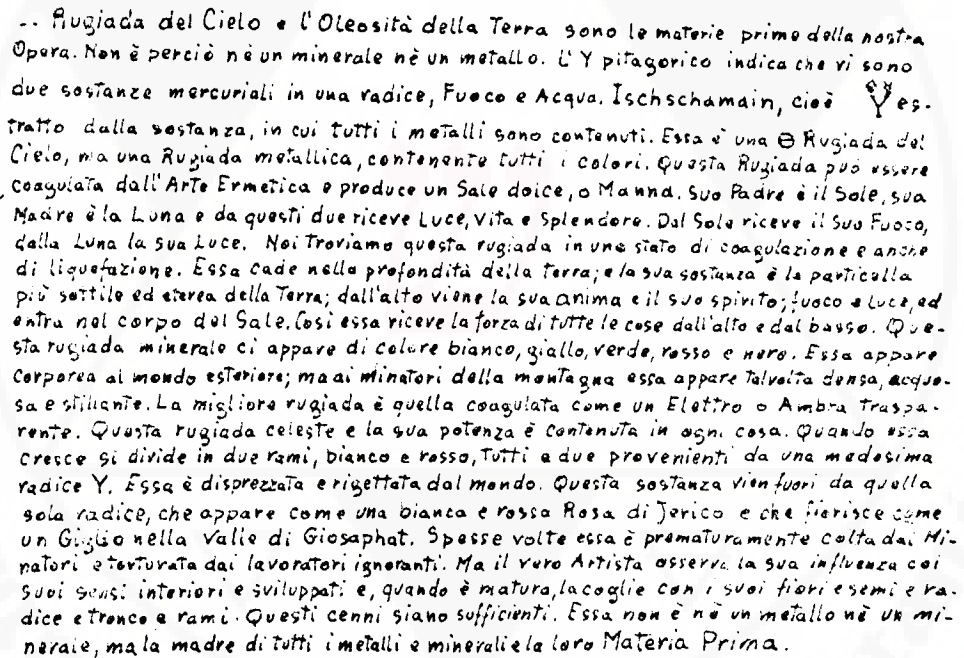 .. Rugiada del Cielo e l'Oleosità della Terra sono le materie prime della nostra
Opera. Non è perciò nè un minerale nè un metallo. L'Y pitagorico indica che vi sono
due sostanze mercuriali in una radice, Fuoco e Acqua. Ischschamain, cioè Y es-
tratto dalla sostanza, in cui tutti i metalli sono contenuti. Essa è una ϴ Rugiada del
Cielo, ma una Rugiada metallica, contenente tutti i colori. Questa Rugiada può essere
coagulata dall'Arte Ermetica e produce un Sale dolce, o Manna. Suo Padre è il Sole, sua
Madre è la Luna e da questi due riceve Luce, Vita e Splendore. Dal Sole riceve il suo Fuoco,
dalla Luna la sua Luce. Noi troviamo questa rugiada in uno stato di coagulazione e anche
di liquefazione. Essa cade nella profondità della terra; e la sua sostanza è la particella
più sottile ed eterea della Terra; dall'alto viene la sua anima e il suo spirito; fuoco e luce, ed
entra nel corpo del Sale. Così essa riceve la forza di tutte le cose dall'alto e dal basso. Que-
sta rugiada minerale ci appare di colore bianco, giallo, verde, rosso e nero. Essa appare
corporea al mondo esteriore; ma ai minatori della montagna essa appare talvolta densa, acquo-
sa e stillante. La migliore rugiada è quella coagulata come un Elettro o Ambra traspa-
rente. Questa rugiada celeste e la sua potenza è contenuta in ogni cosa. Quando essa
cresce si divide in due rami, bianco e rosso, tutti e due provenienti da una medesima
radice Y. Essa è disprezzata e rigettata dal mondo. Questa sostanza vien fuori da quella
sola radice, che appare come una bianca e rossa Rosa di Jerico e che fiorisce come
un Giglio nella Valle di Giosaphat. Spesse volte essa è prematuramente colta dai Mi-
natori e torturata dai lavoratori ignoranti. Ma il vero Artista osserva la sua influenza coi
suoi sensi interiori e sviluppati e, quando è matura, la coglie con i suoi fiori e semi e ra-
dice e tronco e rami. Questi cenni siano sufficienti. Essa non è nè un metallo nè un mi-
nerale, ma la madre di tutti i metalli e minerali e la loro Materia Prima.